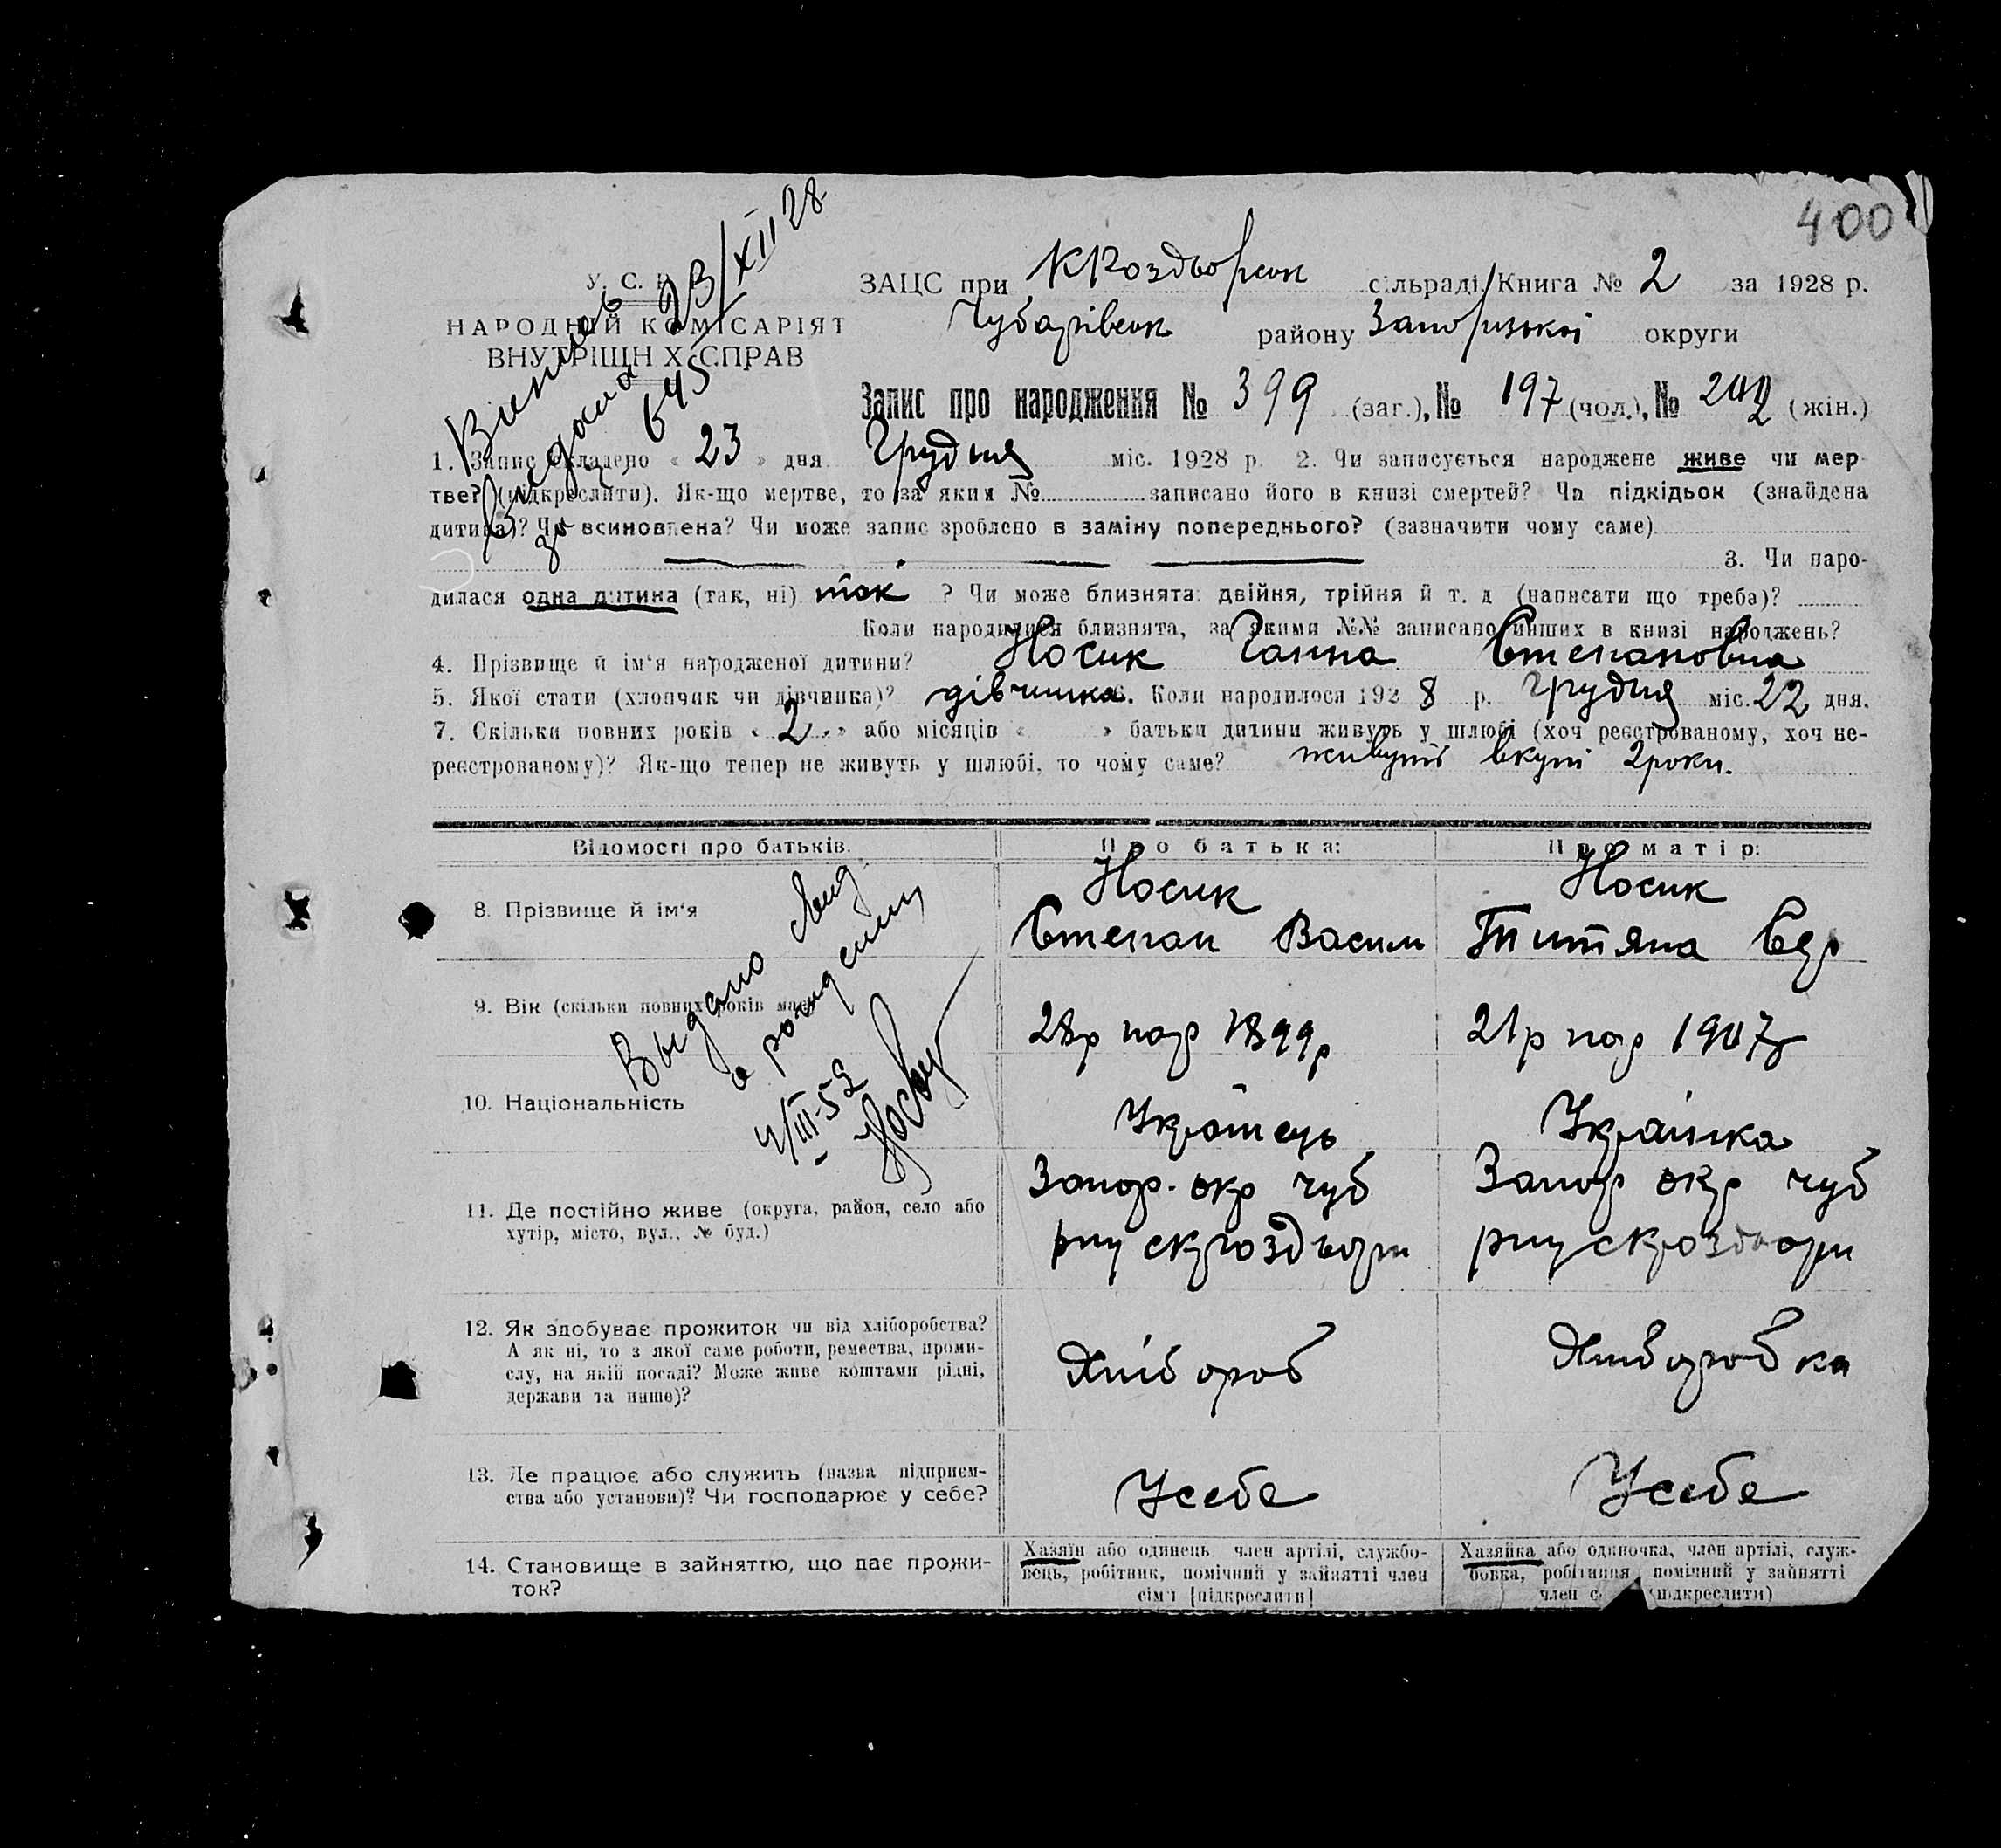 400
У. С. Р.
НАРОДНІЙ КОМІСАРІЯТ
ВНУТРІШН Х СПРАВ
Виписав
видана 23/XII 28
за 645
ЗАЦС при КРоздорськ сільраді Книга № 2 за 1928 р.
Чубарівськ району Запоризької округи
Запис про народження № 399 (заг.), № 197 (чол.), № 202 (жін.)
1. Запис складено « 23 » дня Грудня міс. 1928 р. 2. Чи записується народжене живе чи мер-
тве? (підкреслити). Як-що мертве, то за яким № записано його в книзі смертей? Чи підкідьок (знайдена
дитина)? Чи всиновлена? Чи може запис зроблено в заміну попереднього? (зазначити чому саме)
3. Чи наро-
дилася одна дитина (так, ні) так ? Чи може близнята: двійня, трійня й т. д (написати що треба)?
Коли народилися близнята, за якими №№ записано инших в книзі народжень?
4. Прізвище й ім'я народженої дитини? Носик Ганна Степановна
5. Якої стати (хлопчик чи дівчинка)? дівчинка 6. Коли народилося 1928 р. Грудня міс. 22 дня.
7. Скільки повних років « 2 » або місяців « » батьки дитини живуть у шлюбі (хоч реєстрованому, хоч не-
реєстрованому)? Як-що тепер не живуть у шлюбі, то чому саме? живуть вкупі 2 роки.
Відомості про батьків. Про батька: Про матір:
8. Прізвище й ім'я
Носик
Степан Васил
Носик
Титяна Єдр
Выдано свид
о рождении
4/III-52
9. Він (скільки повних років має)
28р нар 1899р
21р нар 1907р
10. Національність
Україець
Українка
11. Де постійно живе (округа, район, село або
хутір, місто, вул., № буд.)
Запор. окр чуб
рну скроздъори
Запор окр чуб
рну скроздори
12. Як здобуває прожиток чи від хліборобства?
А як ні, то з якої саме роботи, ремества, проми-
слу, на якій посаді? Може живе коштами рідні,
держави та инше)?
Хлібороб
Хлиборобка
13. Де працює або служить (назва підприєм-
ства або установи)? Чи господарює у себе?
Усебе
Усебе
14. Становище в зайняттю, що дає прожи-
ток?
Хазяїн або одинець член артілі, службо-
вець, робітник, помічний у зайнятті член
сім'ї [підкреслити]
Хазяйка або одиночка, член артілі, служ-
бовка, робітниця помічний у зайнятті
член с (підкреслити)